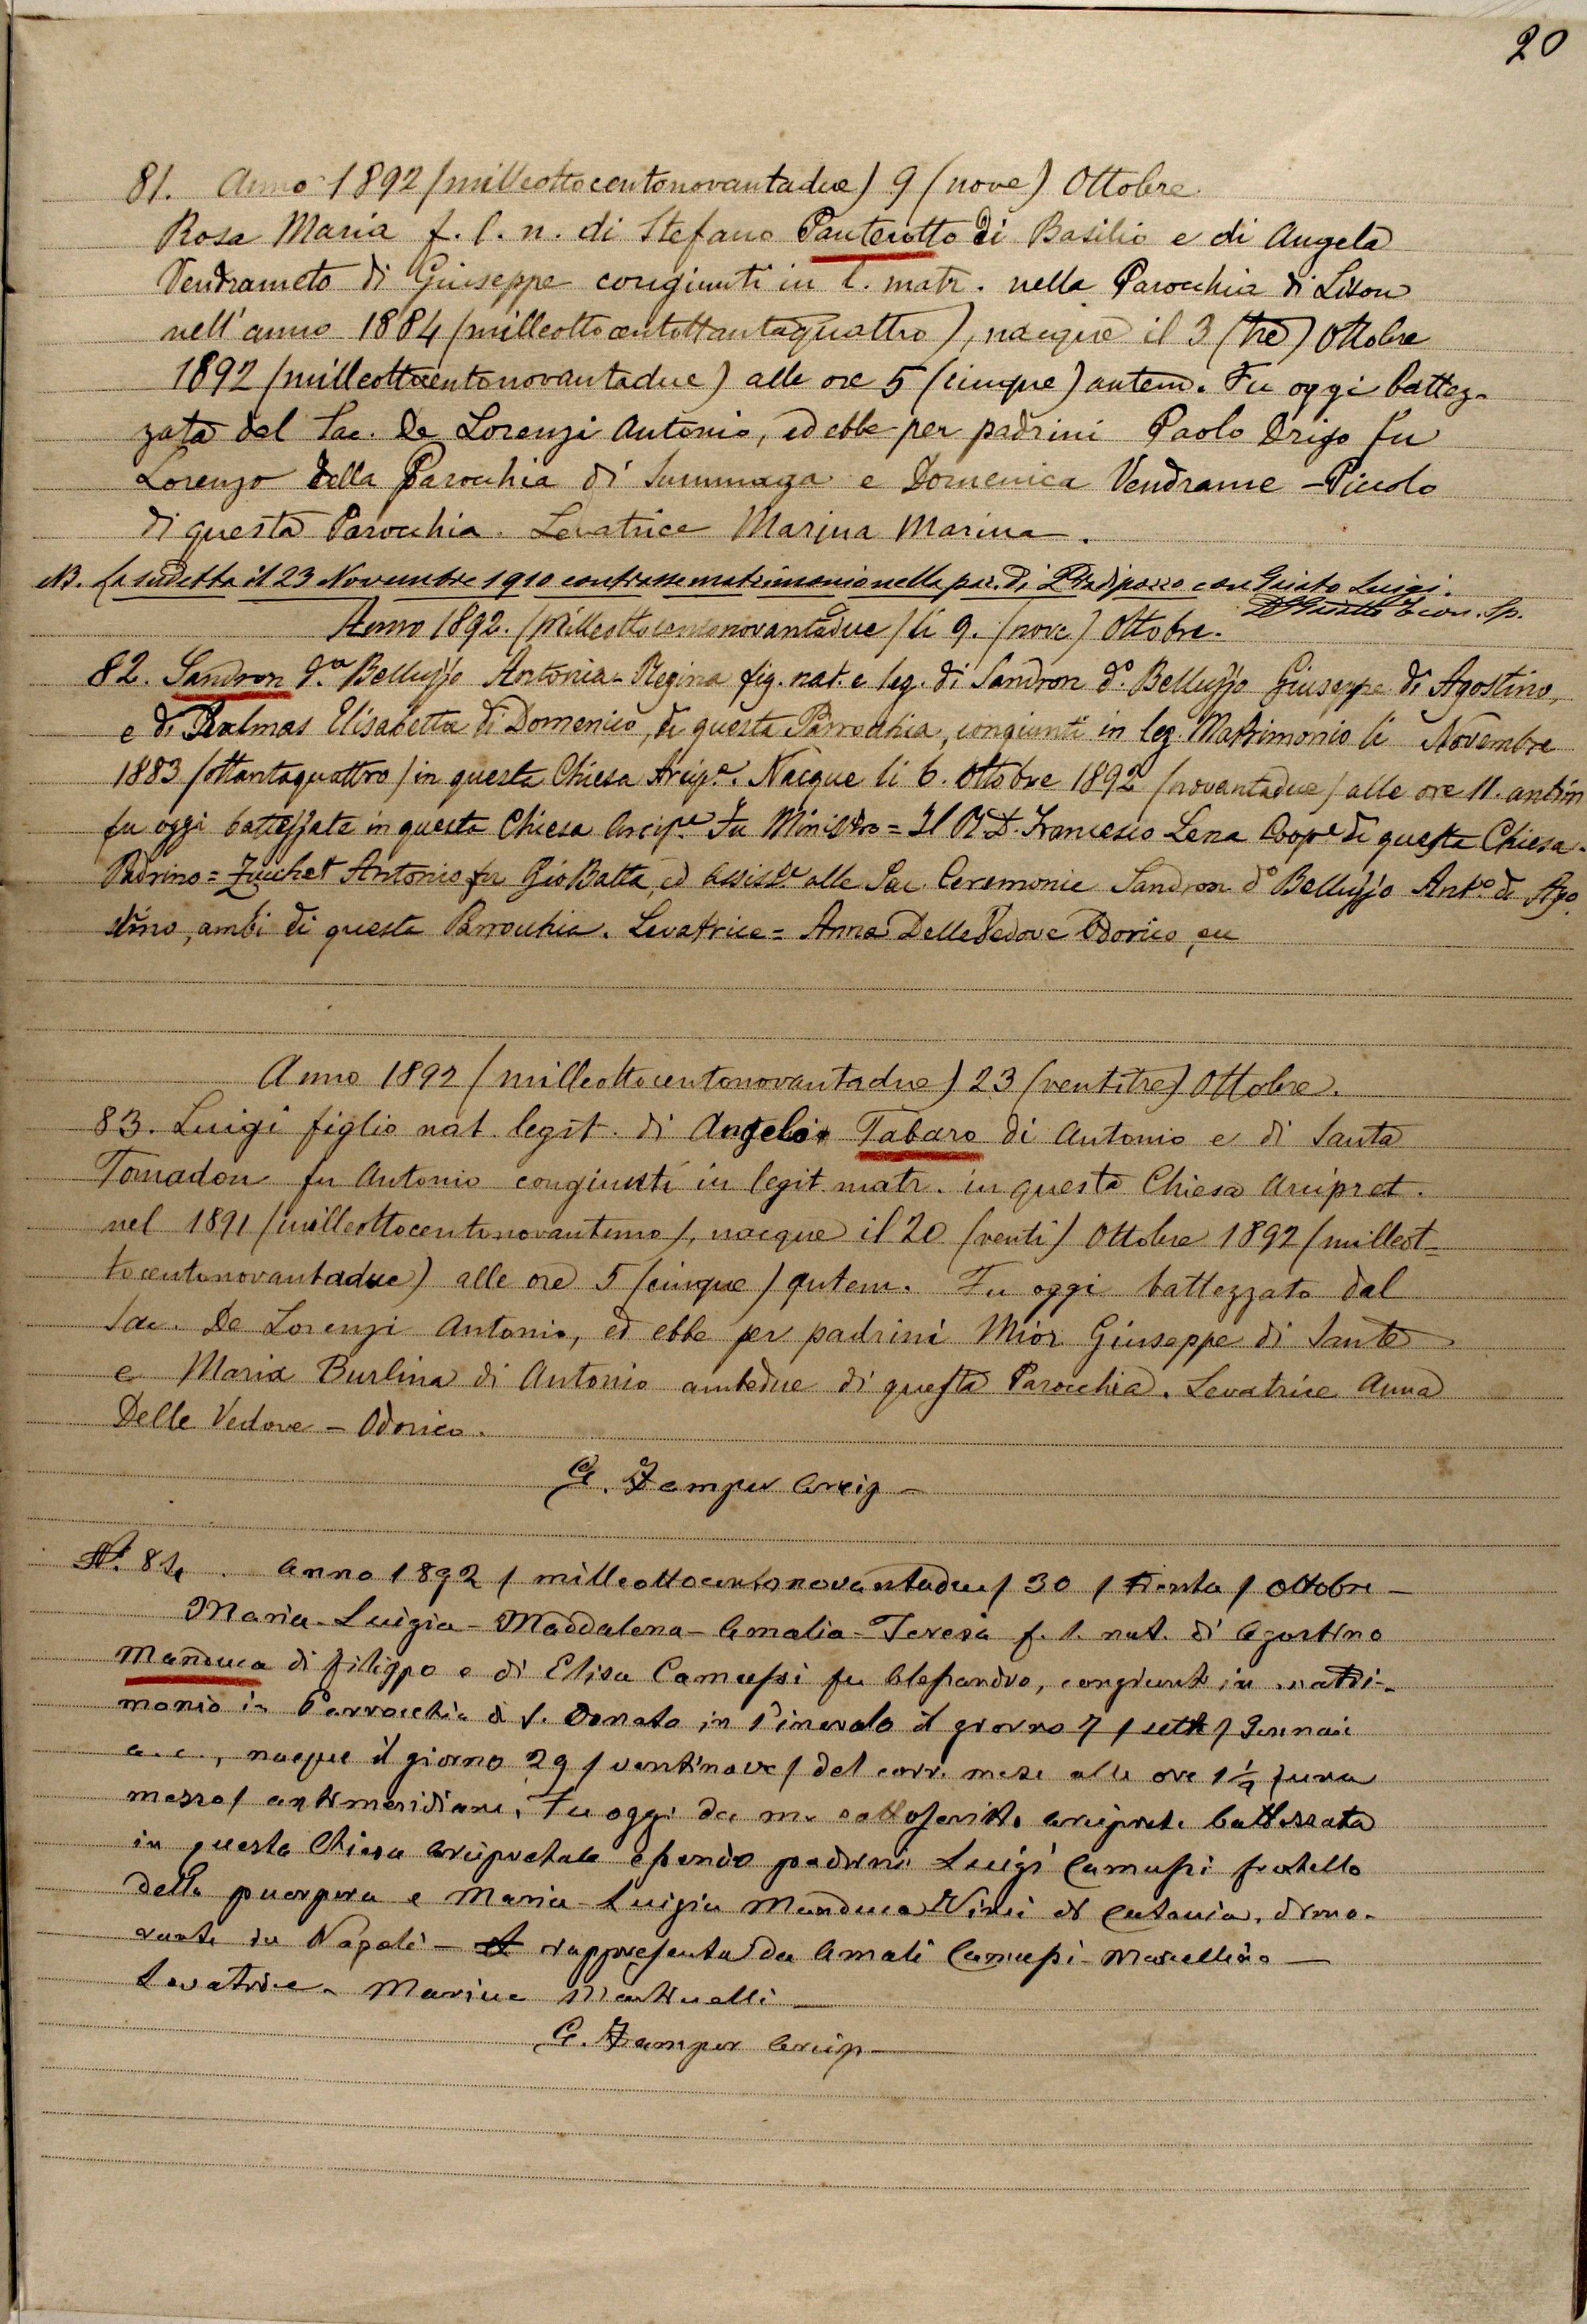 20
81. Anno 1892 (milleottocentonovantadue) 9 (nove) Ottobre
Rosa Maria f. l. n. di Stefano Panterotto di Basilio e di Angela
Vendrameto di Giuseppe congiunti in l. matr. nella Parocchia di Lison
nell'anno 1884 (milleottocentottantaquattro), nacque il 3 (tre) Ottobre
1892 (milleottocentonovantadue) alle ore 5 (cinque) antem. Fu oggi battez-
zata dal Sac. De Lorenzi Antonio, ed ebbe per padrini Paolo Drigo fu
Lorenzo della Parocchia di Summaga e Domenica Vendrame - Piccolo
di questa Parocchia. Levatrice Marina Marina.
NB. La sudetta il 23 Novembre 1910 contrasse matrimonio nella par. di Pradipozzo con Giusto Luigi.
Econ. Sp.
Anno 1892. (milleottocentonovantadue) li 9. (nove) Ottobre.
82. Sandron d.a Belluzzo Antonia-Regina fig. nat. e leg. di Sandron d.o Belluzzo Giuseppe di Agostino,
e di Dalmas Elisabetta di Domenico, di questa Parrochia, congiunti in leg. Matrimonio li Novembre
1883 (ottantaquattro) in questa Chiesa Arcip.e. Nacque li 6. Ottobre 1892 (novantadue) alle ore 11. antim
fu oggi battezzata in questa Chiesa Arcip.e Fu Ministro = Il M. R. D. Francesco Lena Coop.e di questa Chiesa.
Padrino = Zucchet Antonio fu Gio Batta, ed Assist.e alle Sac. Ceremonie Sandron d.o Belluzzo Ant.o di Ago
stino, ambi di questa Parrochia. Levatrice = Anna Delle Vedove Odorico
Anno 1892 (milleottocentonovantadue) 23 (ventitre) Ottobre.
83. Luigi figlio nat. legit. di Angelo Tabaro di Antonio e di Santa
Tomadon fu Antonio congiunti in legit. matr. in questa Chiesa Arcipret.
nel 1891 (milleottocentonovantuno), nacque il 20 (venti) Ottobre 1892 (milleot-
tocentonovantadue) alle ore 5 (cinque) antem. Fu oggi battezzato dal
Sac. De Lorenzi Antonio, ed ebbe per padrini Mior Giuseppe di Sante
e Maria Burlina di Antonio ambedue di questa Parocchia. Levatrice Anna
Delle Vedove - Odorico.
G. Zamper Arcip -
N. 84. Anno 1892 / milleottocentonovantadue / 30 / trenta / Ottobre -
Maria-Luigia-Maddalena-Amalia-Teresa f. l. nat. di Agostino
Manduca di Filippo e di Elisa Camussi fu Alessandro, congiunti in matri-
monio in Parrocchia di S. Donato in Pinerolo il giorno 7 / sette / Gennaio
a. c., nacque il giorno 29 / ventinove / del corr. mese alle ore 1 1/2 / una
mezza / antimeridiane. Fu oggi da me sottoscritto arciprete battezzata
in questa Chiesa Arcipretale essendo padrini Luigi Camussi fratello
della puerpera e Maria-Luigia Manduca Vinci di Catania, dimo-
rante in Napoli - rappresentata da Amali Camussi-Marcellino -
Levatrice - Marina Martinelli -
G. Zamper Arcip -